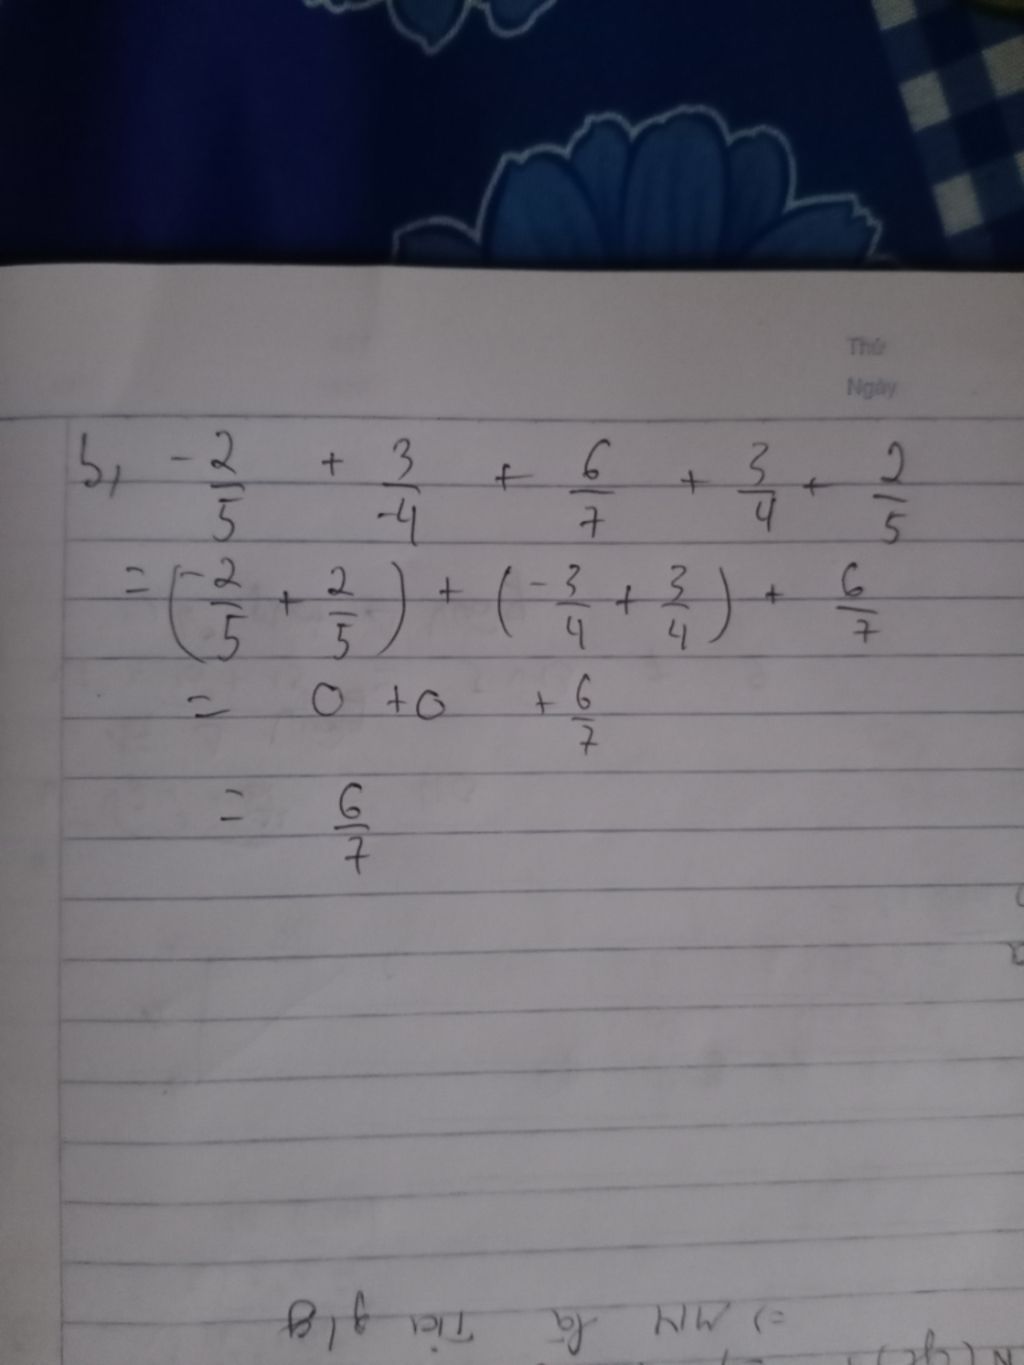 Thứ
Ngày
b, -2/5 + 3/-4 + 6/7 + 3/4 + 2/5
= (-2/5 + 2/5) + (-3/4 + 3/4) + 6/7
= 0 + 0 + 6/7
= 6/7